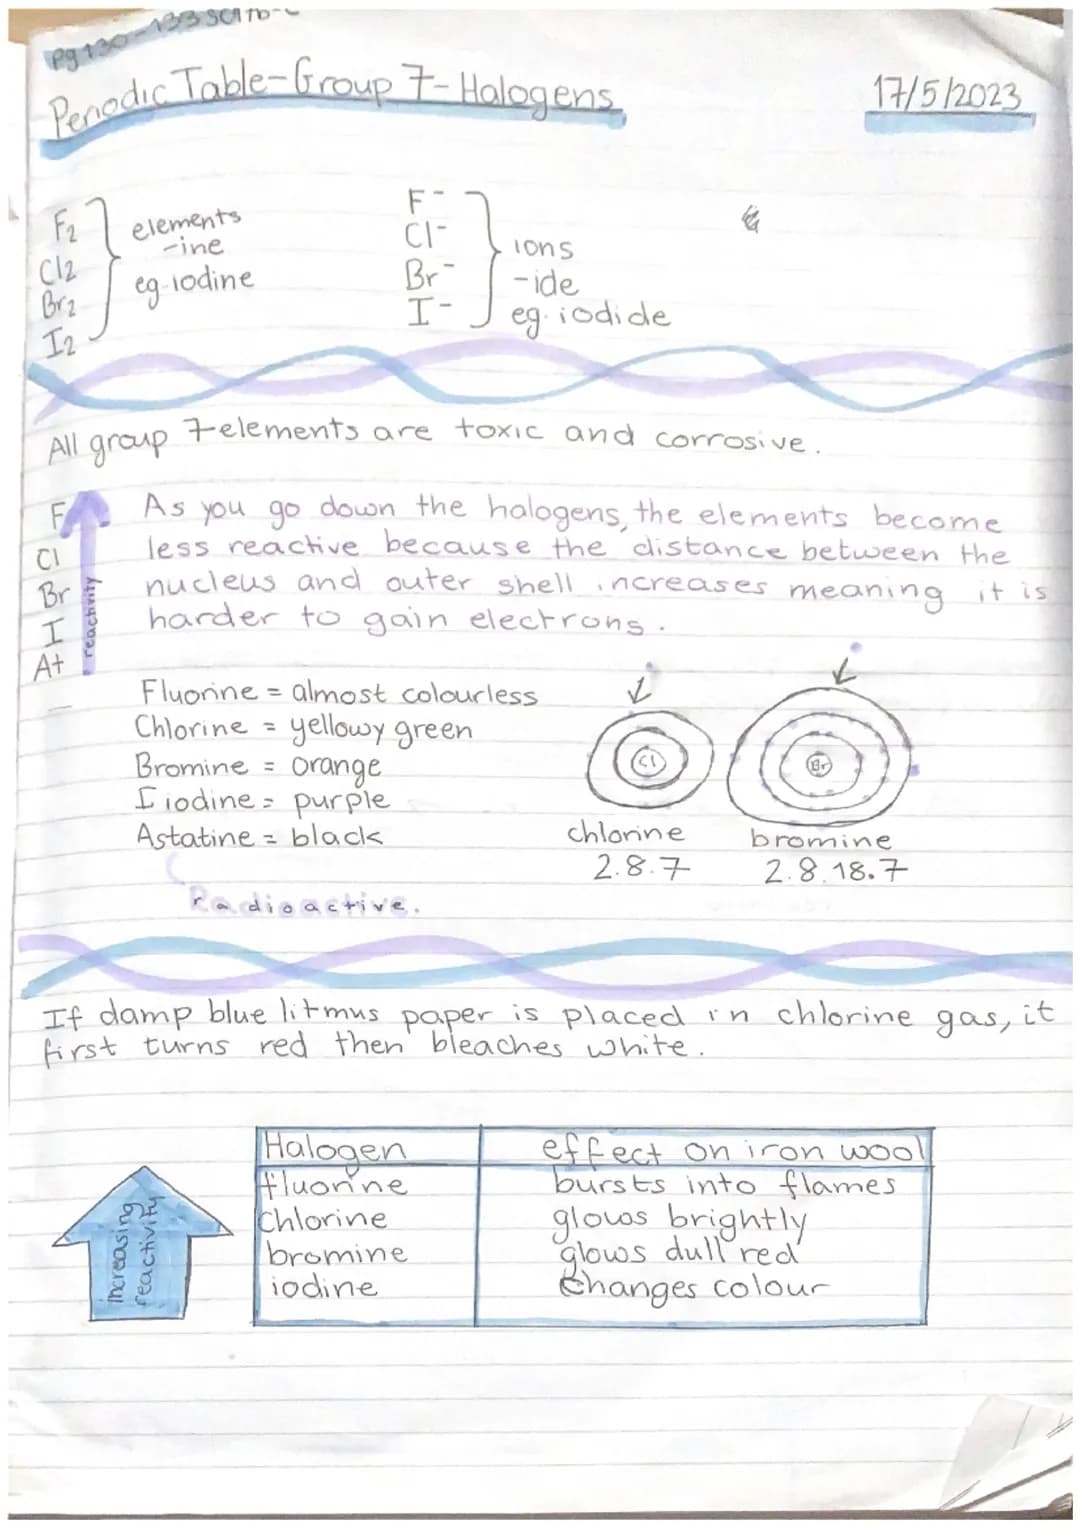 Pg 130-133
Periodic Table-Group 7-Halogens
17/5/2023
F2
Cl2
Br2
I2
elements
-ine
eg. iodine
F-
Cl-
Br-
I-
ions
-ide
eg. iodide
All group 7 elements are toxic and corrosive.
F
Cl
Br
I
At
reactivity
As you go down the halogens, the elements become
less reactive because the distance between the
nucleus and outer shell increases meaning it is
harder to gain electrons.
Fluorine = almost colourless
Chlorine = yellowy green
Bromine = orange
I iodine = purple
Astatine = black
Radioactive.
Cl
chlorine
2.8.7
Br
bromine
2.8.18.7
If damp blue litmus paper is placed in chlorine gas, it
first turns red then bleaches white.
increasing
reactivity
Halogen effect on iron wool
fluorine bursts into flames
Chlorine glows brightly
bromine glows dull red
iodine Changes colour